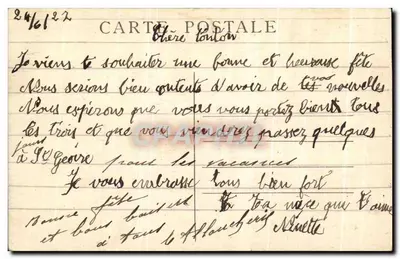 24/6/22
CARTE POSTALE
Chère
Je viens te souhaiter une bonne et heureuse fête
Nous serions bien contents d'avoir de tes vos nouvelles
Nous espérons que vous vous portez bient tous
les trois et que vous viendrez passez quelques
jours
à St Geoire pour les vacances
Je vous embrasse tous bien fort
Ta nièce que t'aime
Ninette
Bonne fête
et bons baisers
à tous